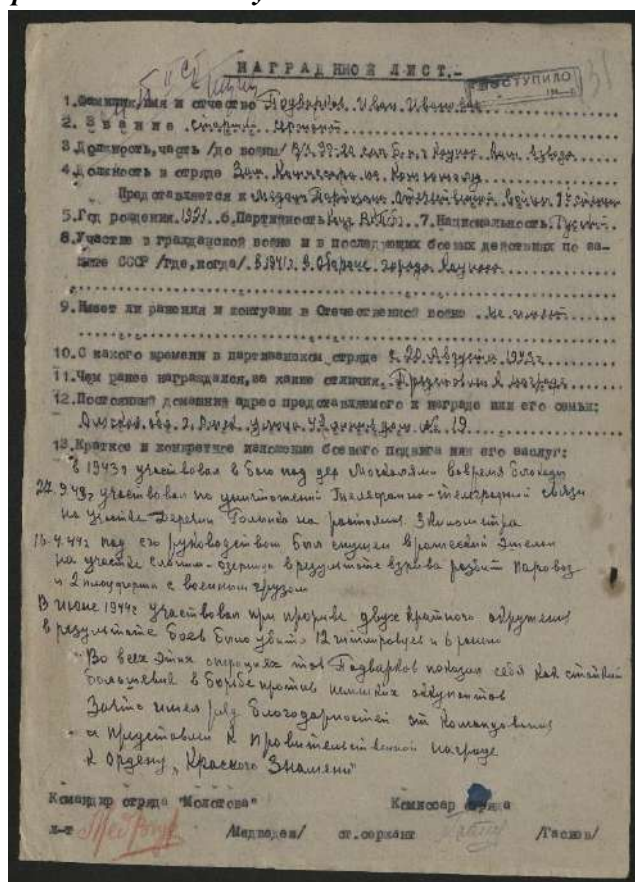 НАГРАДНОЙ ЛИСТ.-
ПОСТУПИЛО
1.Фамилия,имя и отчество Подварков Иван Иванович
2. Звание старший сержант
3.Должность,часть /до войны/ взвода
4.Должность в отряде Зам. Комиссара по Комсомолу
Представляется к медали Партизану Отечественной Войны степени
5.Год рождения 1921 6.Партийность ВКП/б/ 7.Национальность Русский
8.Участие в гражданской войне и в последующих боевых действиях по за-
щите СССР /где,когда/ в 1941г. в Обороне города Каунаса
9.Имеет ли ранения и контузии в Отечественной войне не имеет
10.С какого времени в партизанском отряде с 20 Августа 1943г
11.Чем ранее награждался,за какие отличия
12.Постоянный домашний адрес представляемого к награде или его семьи:
Омская обл. г. Омск улица дом № 19
13.Краткое и конкретное изложение боевого подвига или его заслуг:
в 1943г участвовал в бою под дер вовремя блокады
22.9.43г участвовал по уничтожению телефонно-телеграфной связи
на участке деревни на растояние 3 километра
16.4.44г под его руководством был спущен вражеский эшелон
на участке Слоним-Озерница в результате взрыва разбит паровоз
и 2 платформы с военным грузом
В июне 1944г участвовал при прорыве двух кратного окружения
в результате боев было убито 12 гитлеровцев и 6 ранено
Во всех этих операциях тов Подварков показал себя как стойкий
большевик в борьбе против немецких оккупантов
За что имел ряд благодарностей от Командования
и представлен к правительственной награде
к Ордену „Красного Знамени"
Командир отряда "Молотова" Комиссар отряда
л-т /Медведев/ ст.сержант /Гаснов/